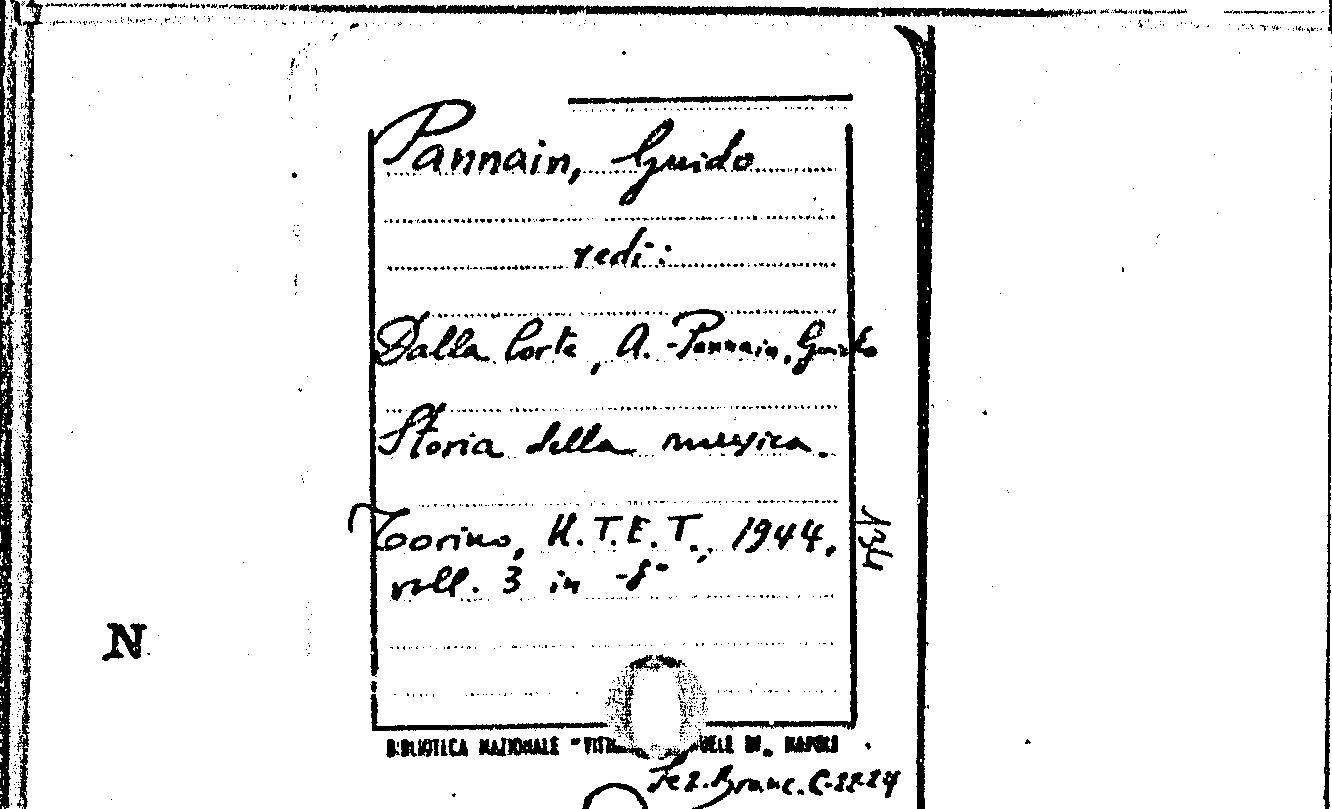 Pannain, Guido
vedi:
Dalla Corte, A. - Pannain, Guido
Storia della musica.
Torino, U.T.E.T., 1944,
voll. 3 in -8°
N
BIBLIOTECA NAZIONALE "VITT UELE III" NAPOLI
Sez. Branc. C-22-24